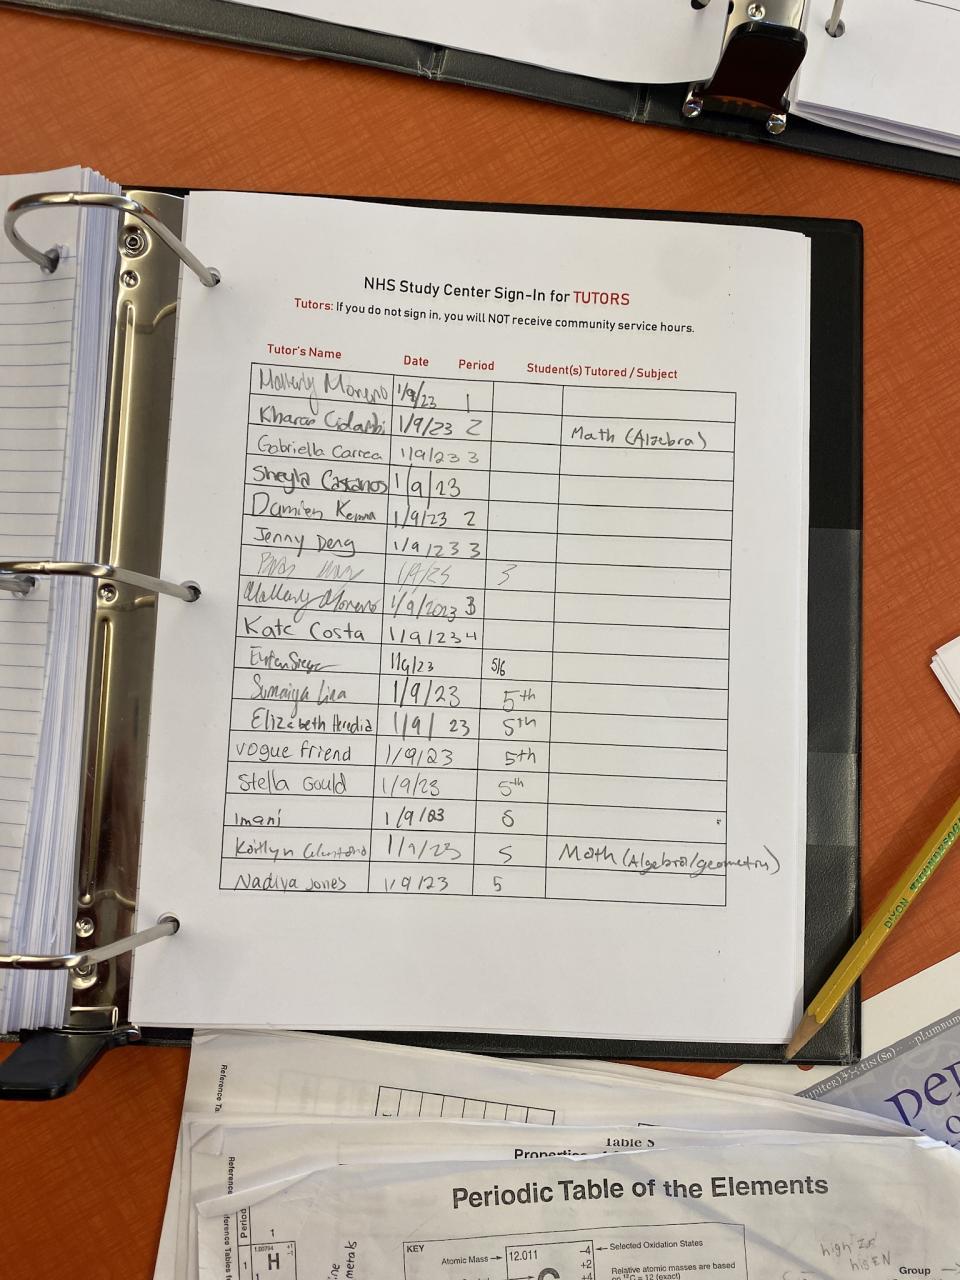 NHS Study Center Sign-In for TUTORS
Tutors: If you do not sign in, you will NOT receive community service hours.
Tutor's Name Date Period Student(s) Tutored / Subject
Mallerly Moreno 1/9/23 1
1/9/23 2 Math (Algebra)
Gabriella Correa 1/9/23 3
Sheyla Castanos 1/9/23
Damien 1/9/23 2
Jenny Deng 1/9/23 3
3
Mallerly Moreno 1/9/2023 3
Kate Costa 1/9/23 4
1/9/23 5/6
Sumaiya 1/9/23 5th
Elizabeth Heredia 1/9/23 5th
vogue friend 1/9/23 5th
Stella Gould 1/9/23 5th
Imani 1/9/23 5
Kaitlyn 1/9/23 5 Math (Algebra/geometry)
Nadiya Jones 1/9/23 5
DIXON TICONDEROGA
Reference Ta
Reference
ference Tables f
Table S
Periodic Table of the Elements
Period
1
1.00794
H
1
metals
KEY
Atomic Mass 12.011
-4
+2
+4
Selected Oxidation States
Relative atomic masses are based
on 12C = 12 (exact)
high IE
Group
tin(Sn)
plumbum
per